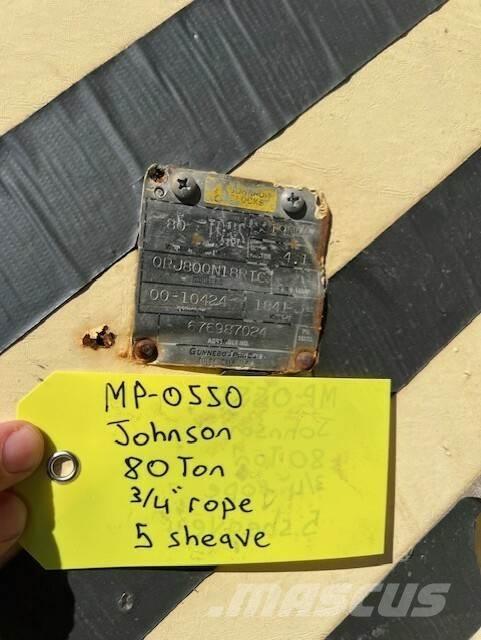 JOHNSON
BLOCKS
80
4.1
QBJ800N18RTC
00-10424
676987024
GUNNEBO JOHNSON
MP-0550
Johnson
80 Ton
3/4" rope
5 sheave
MASCUS